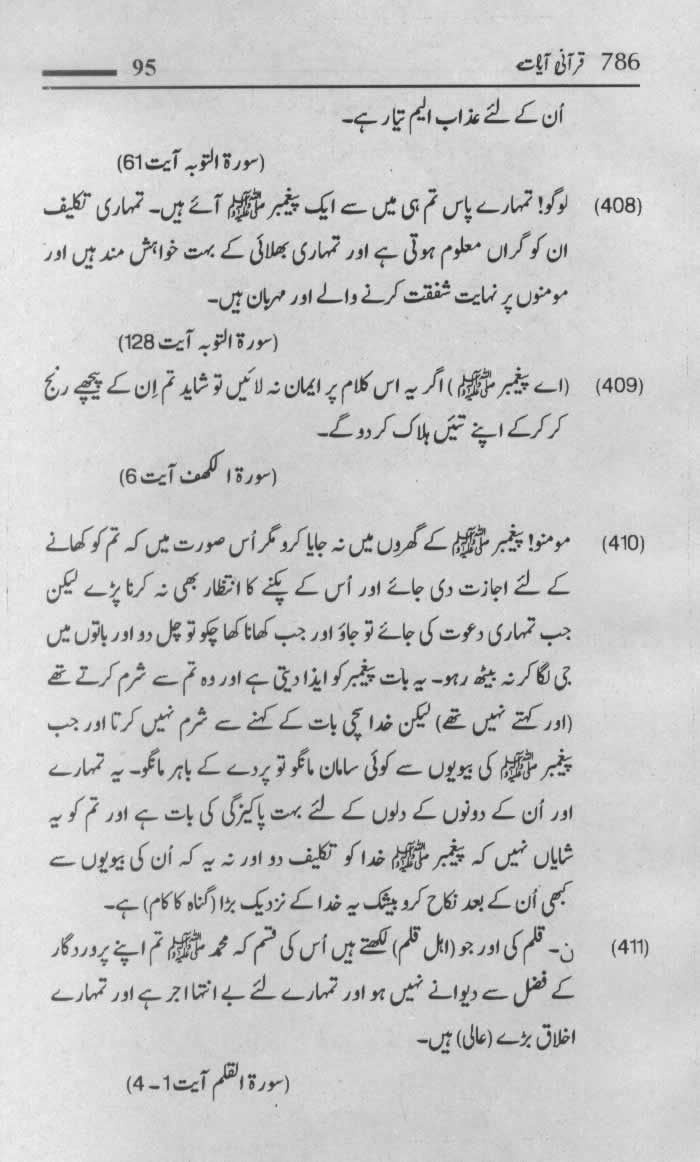 786 قرآنی آیات 95
اُن کے لئے عذاب الیم تیار ہے۔
(سورۃ التوبہ آیت 61)
(408) لوگو! تمہارے پاس تم ہی میں سے ایک پیغمبر ﷺ آئے ہیں۔ تمہاری تکلیف
ان کو گراں معلوم ہوتی ہے اور تمہاری بھلائی کے بہت خواہش مند ہیں اور
مومنوں پر نہایت شفقت کرنے والے اور مہربان ہیں۔
(سورۃ التوبہ آیت 128)
(409) (اے پیغمبر ﷺ) اگر یہ اس کلام پر ایمان نہ لائیں تو شاید تم اِن کے پیچھے رنج
کر کرکے اپنے تئیں ہلاک کر دو گے۔
(سورۃ الکھف آیت 6)
(410) مومنو! پیغمبر ﷺ کے گھروں میں نہ جایا کرو مگر اُس صورت میں کہ تم کو کھانے
کے لئے اجازت دی جائے اور اُس کے پکنے کا انتظار بھی نہ کرنا پڑے لیکن
جب تمہاری دعوت کی جائے تو جاؤ اور جب کھانا کھا چکو تو چل دو اور باتوں میں
جی لگا کر نہ بیٹھ رہو۔ یہ بات پیغمبر کو ایذا دیتی ہے اور وہ تم سے شرم کرتے تھے
(اور کہتے نہیں تھے) لیکن خدا سچی بات کے کہنے سے شرم نہیں کرتا اور جب
پیغمبر ﷺ کی بیویوں سے کوئی سامان مانگو تو پردے کے باہر مانگو۔ یہ تمہارے
اور اُن کے دونوں کے دلوں کے لئے بہت پاکیزگی کی بات ہے اور تم کو یہ
شایاں نہیں کہ پیغمبر ﷺ خدا کو تکلیف دو اور نہ یہ کہ اُن کی بیویوں سے
کبھی اُن کے بعد نکاح کرو بیشک یہ خدا کے نزدیک بڑا (گناہ کا کام) ہے۔
(411) ن۔ قلم کی اور جو (اہل قلم) لکھتے ہیں اُس کی قسم کہ محمد ﷺ تم اپنے پروردگار
کے فضل سے دیوانے نہیں ہو اور تمہارے لئے بے انتہا اجر ہے اور تمہارے
اخلاق بڑے (عالی) ہیں۔
(سورۃ القلم آیت 1۔4)